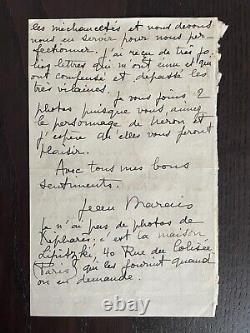 les méchancetés et nous devons
nous en servir pour nous per-
fectionner. J'ai reçu de très jo-
lies lettres qui m'ont ému et qui
ont compensé et dépassé les
très vilaines.
Je vous joins 2
photos puisque vous aimez
le personnage de Neron et
j'espère qu'elles vous feront
plaisir.
Avec tous mes bons
sentiments.
Jean Marais
Je n'ai pas de photos de
Rephares: c'est la maison
Lipitzki, 40 Rue du Colisée
Paris, qui les fournit quand
on en demande.